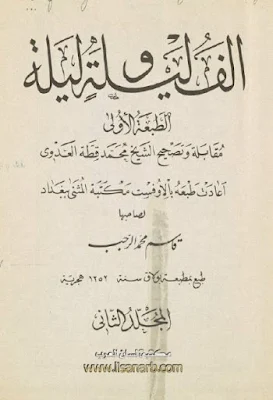 الف ليلة وليلة
الطبعة الأولى
مقابلة وتصحيح الشيخ محمد قطة العدوى
أعادت طبعه بالأوفست مكتبة المثنى ببغداد
لصاحبها
قاسم محمد الرجب
طبع بمطبعة بولاق سنة ١٢٥٢ هجرية
المجلد الثانى
مكتبة لسان العرب
www.lisanarb.com